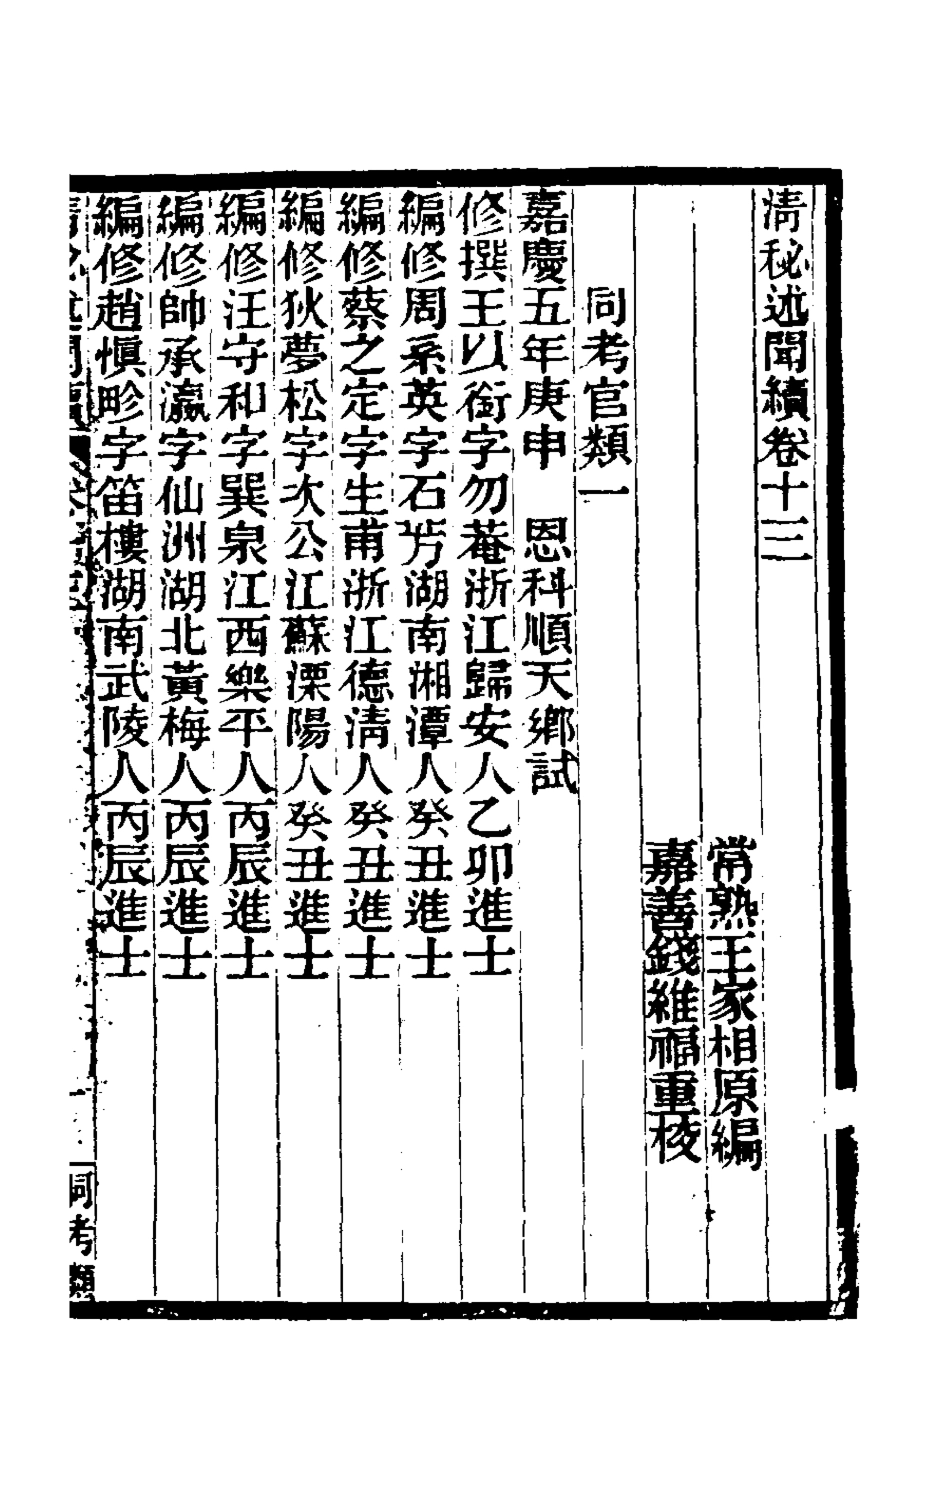 清秘述聞續卷十三
常熟王家相原編
嘉善錢維福重校
同考官類一
嘉慶五年庚申　恩科順天鄉試
修撰王以銜字勿菴浙江歸安人乙卯進士
編修周系英字石芳湖南湘潭人癸丑進士
編修蔡之定字生甫浙江德清人癸丑進士
編修狄夢松字次公江蘇溧陽人癸丑進士
編修汪守和字巽泉江西樂平人丙辰進士
編修帥承瀛字仙洲湖北黃梅人丙辰進士
編修趙慎畛字笛樓湖南武陵人丙辰進士
同考類